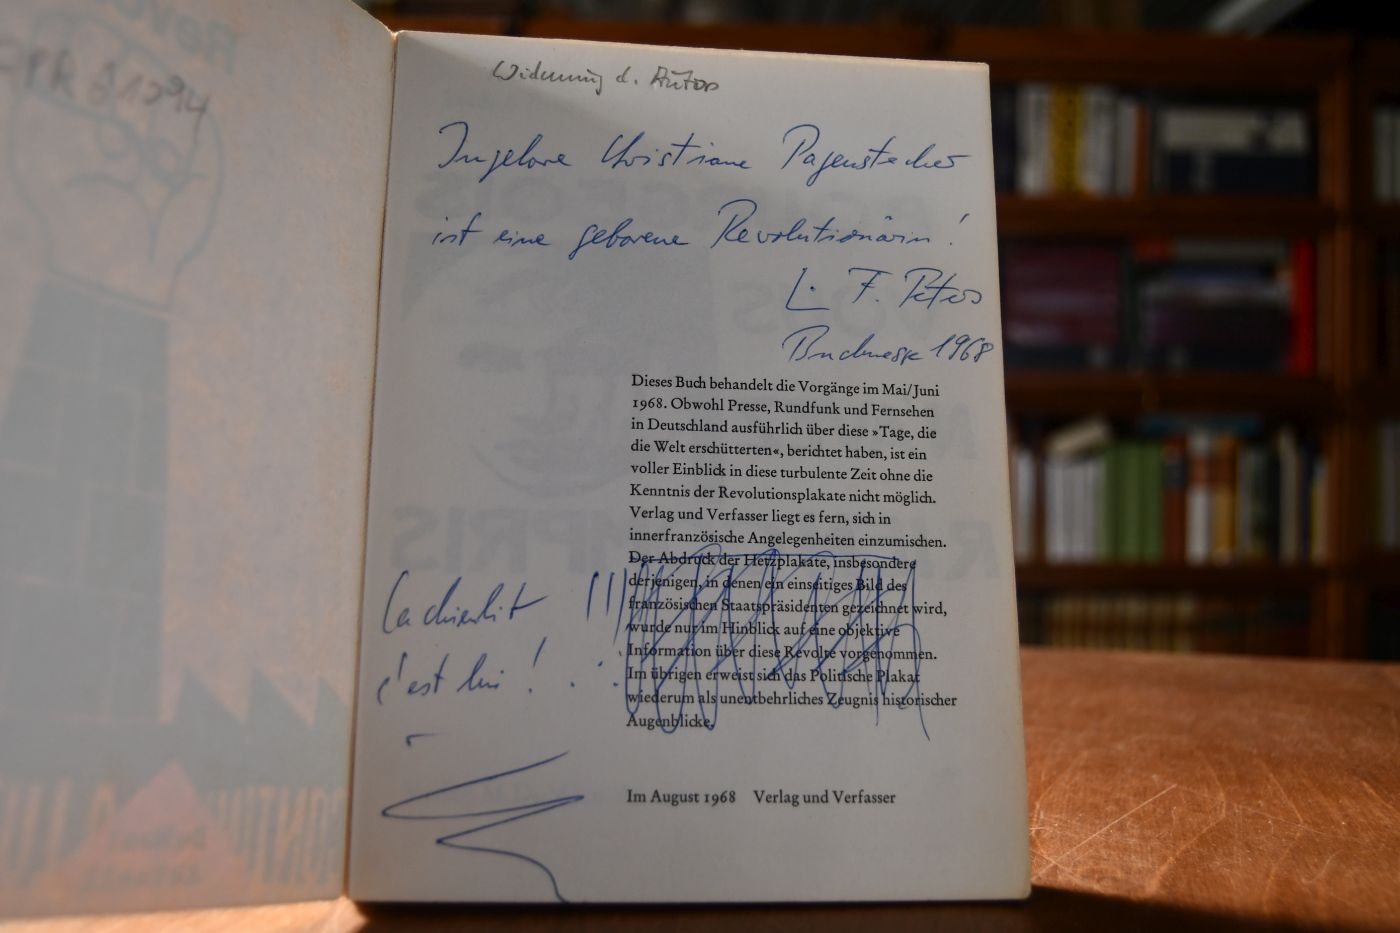 Widmung d. Autors
Ingelore Christiane Pagenstecher
ist eine geborene Revolutionärin!
L. F. Peters
Buchmesse 1968
Dieses Buch behandelt die Vorgänge im Mai/Juni
1968. Obwohl Presse, Rundfunk und Fernsehen
in Deutschland ausführlich über diese »Tage, die
die Welt erschütterten«, berichtet haben, ist ein
voller Einblick in diese turbulente Zeit ohne die
Kenntnis der Revolutionsplakate nicht möglich.
Verlag und Verfasser liegt es fern, sich in
innerfranzösische Angelegenheiten einzumischen.
Der Abdruck der Hetzplakate, insbesondere
derjenigen, in denen ein einseitiges Bild des
französischen Staatspräsidenten gezeichnet wird,
wurde nur im Hinblick auf eine objektive
Information über diese Revolte vorgenommen.
Im übrigen erweist sich das Politische Plakat
wiederum als unentbehrliches Zeugnis historischer
Augenblicke.
La chienlit !!!
c'est lui!
Im August 1968 Verlag und Verfasser